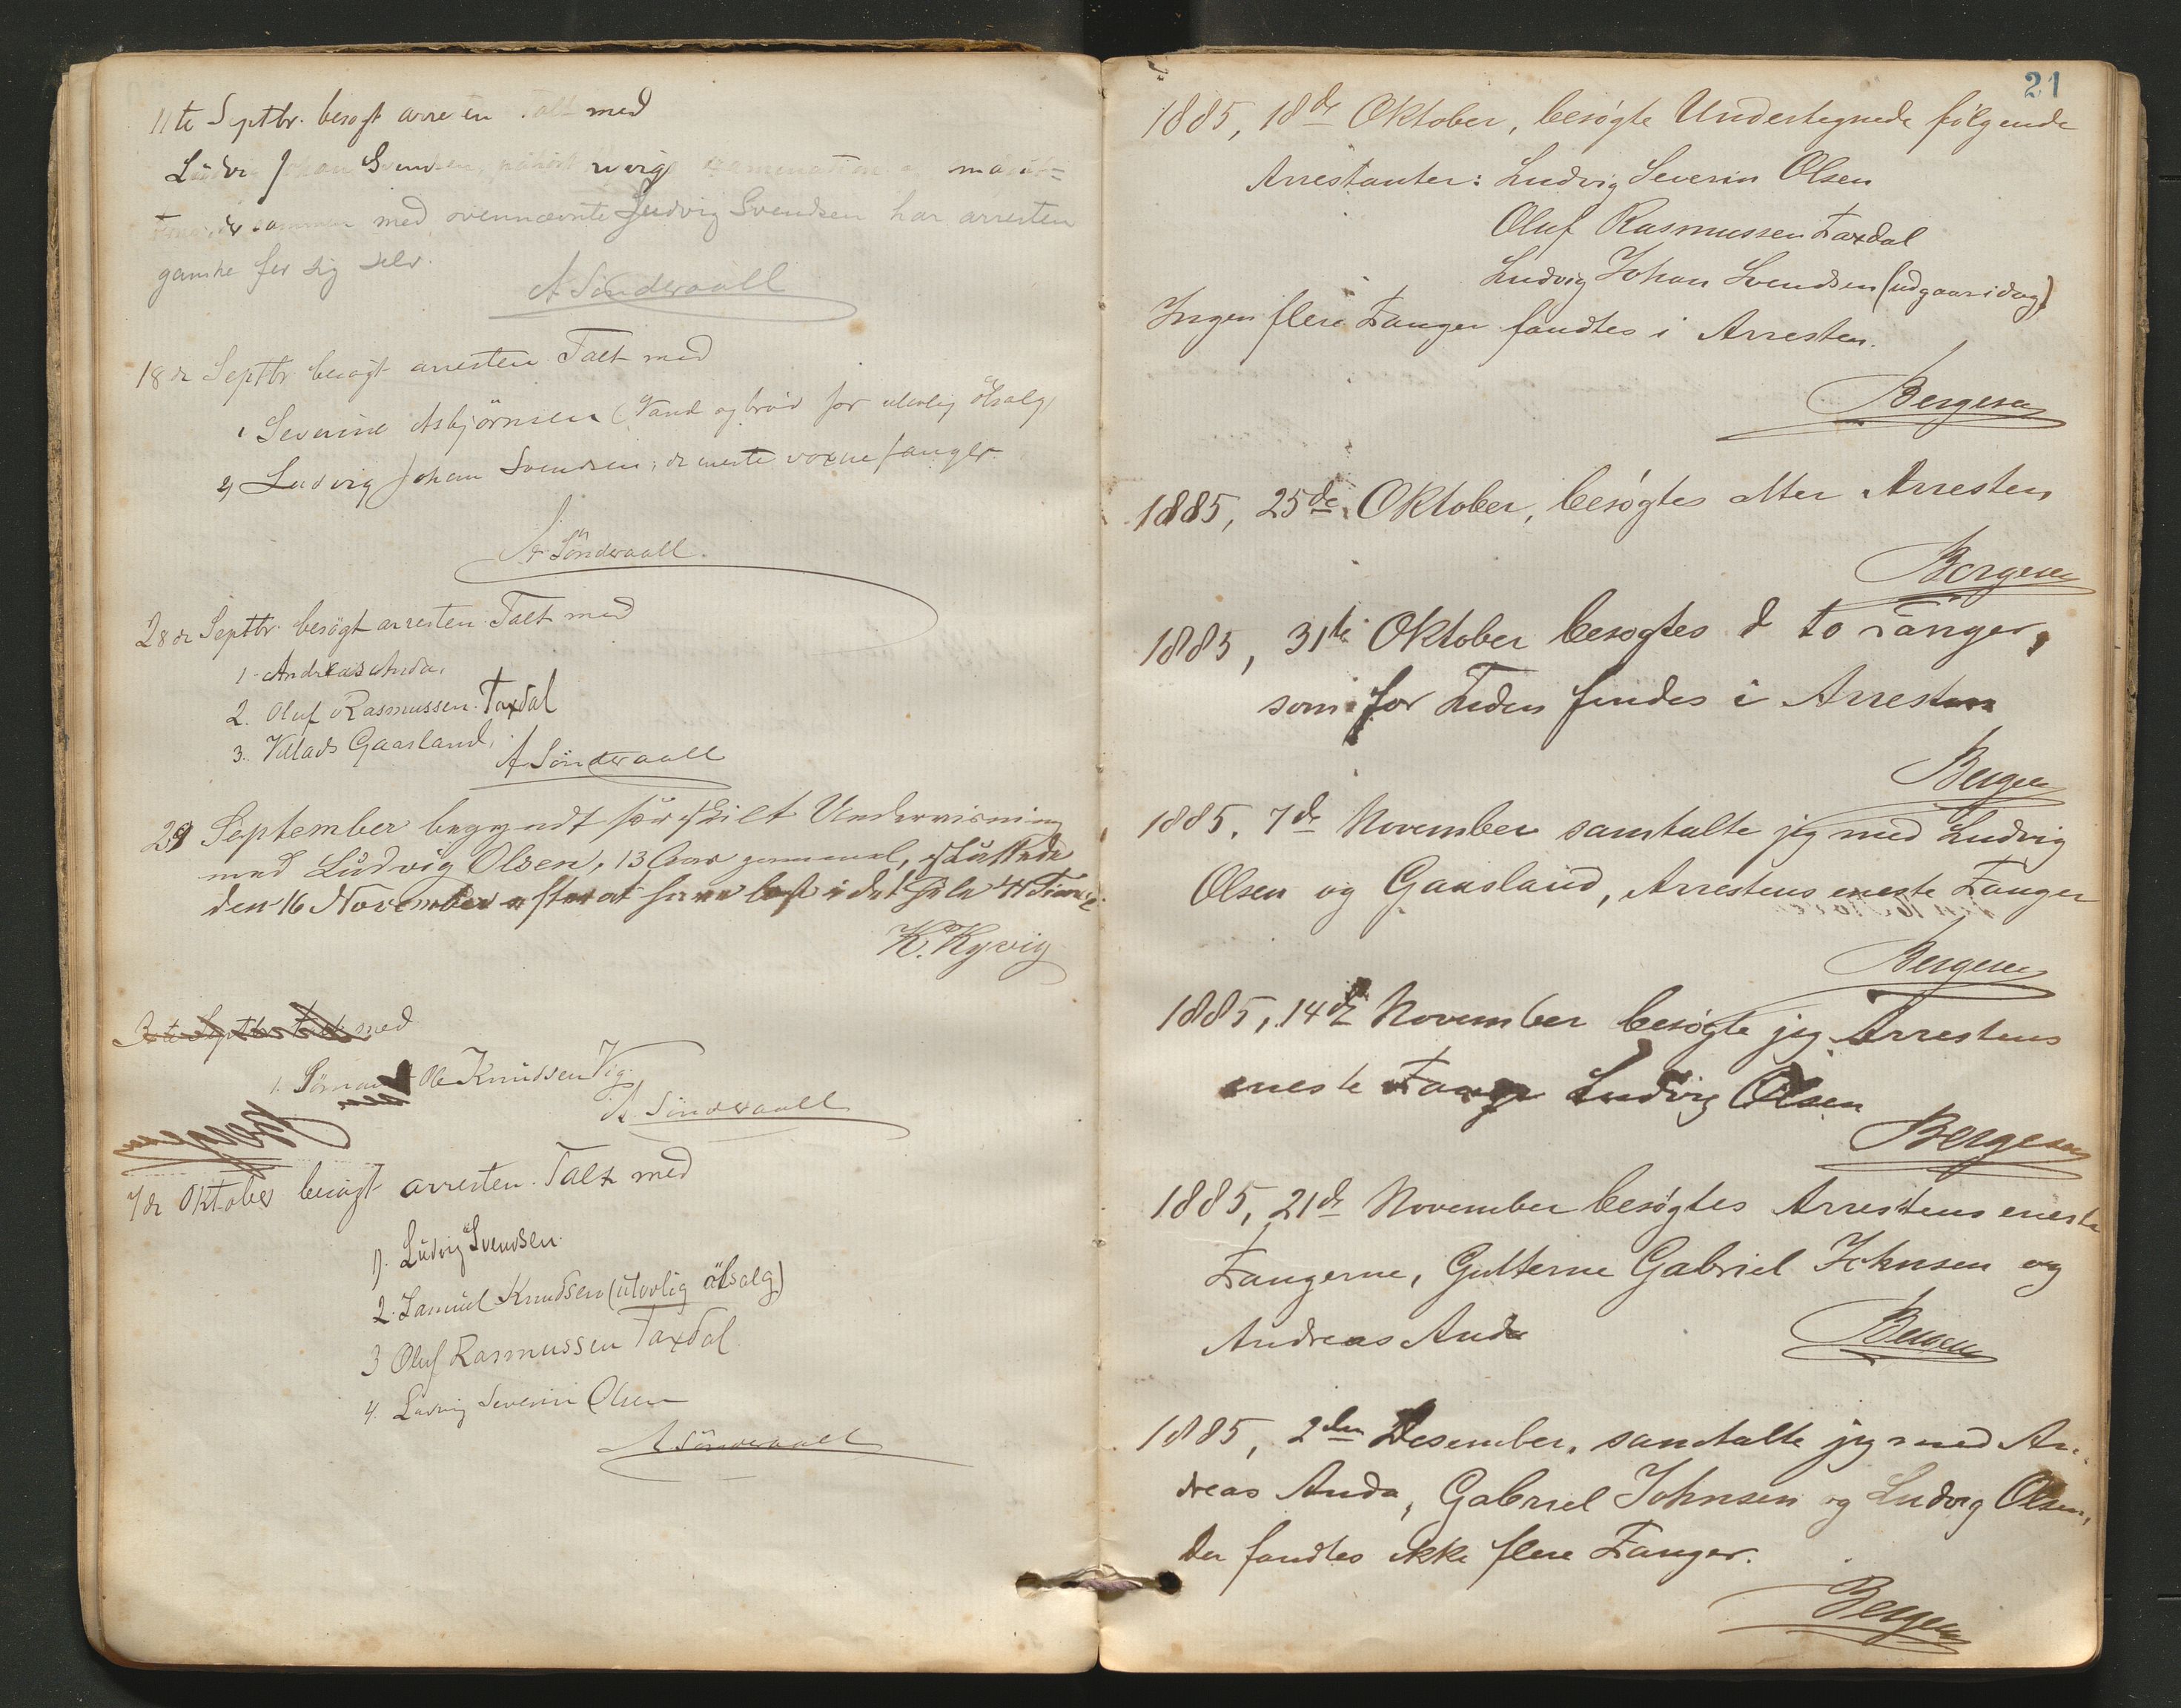 11te Septbr. besøgt arresten Talt med
Ludvig Johan Svendsen,
sammen med ovennævnte Ludvig Svendsen har arresten
ganske for sig selv.
A Sönderaall
18de Septbr besøgt arresten Talt med
1 Severine Asbjörnsen (Vand og bröd for ulovlig ölsalg)
2) Ludvig Johan Svendsen; de eneste voxne fanger
A Sönderaall.
28de Septbr. besögt arresten Talt med
1. Andreas Anda.
2. Oluf Rasmussen Taxdal
3. Villads Gaasland.
A Sönderaall
29 September begyndt særskilt Undervisning
med Ludvig Olsen, 13 Aar gammel, sluttede
den 16 November efter at have læst i det Hele 41 Timer
K. Kyvig
Septbr Talt med
1. Ole Knudsen Vig.
A. Sönderaall
7de Oktober besögt arresten. Talt med
1). Ludvig Svendsen.
2. Samuel Knudsen (ulovlig ölsalg)
3 Oluf Rasmussen Taxdal
4. Ludvig Severin Olsen
A Sönderaall
21
1885, 18de Oktober, besøgte Undertegnede følgende
Arrestanter: Ludvig Severin Olsen
Oluf Rasmussen Taxdal
Ludvig Johan Svendsen (udgaar i dag)
Ingen flere Fanger fandtes i Arresten.
Bergesen
1885, 25de Oktober, besøgtes atter Arresten
Bergesen
1885, 31te Oktober besøgtes d to Fanger,
som for Tiden findes i Arresten
Bergesen
1885, 7de November samtalte jeg med Ludvig
Olsen og Gaasland, Arrestens eneste Fanger
Bergesen
1885, 14de November besøgte jeg Arrestens
eneste Fange Ludvig Olsen
Bergesen
1885, 21de November besøgtes Arrestens eneste
Fangerne, Gutterne Gabriel Johnsen og
Andreas Anda
Bergesen
1885, 2den Desember, samtalte jeg med An-
dreas Anda, Gabriel Johnsen og Ludvig Olsen,
Der fandtes ikke flere Fanger.
Bergesen